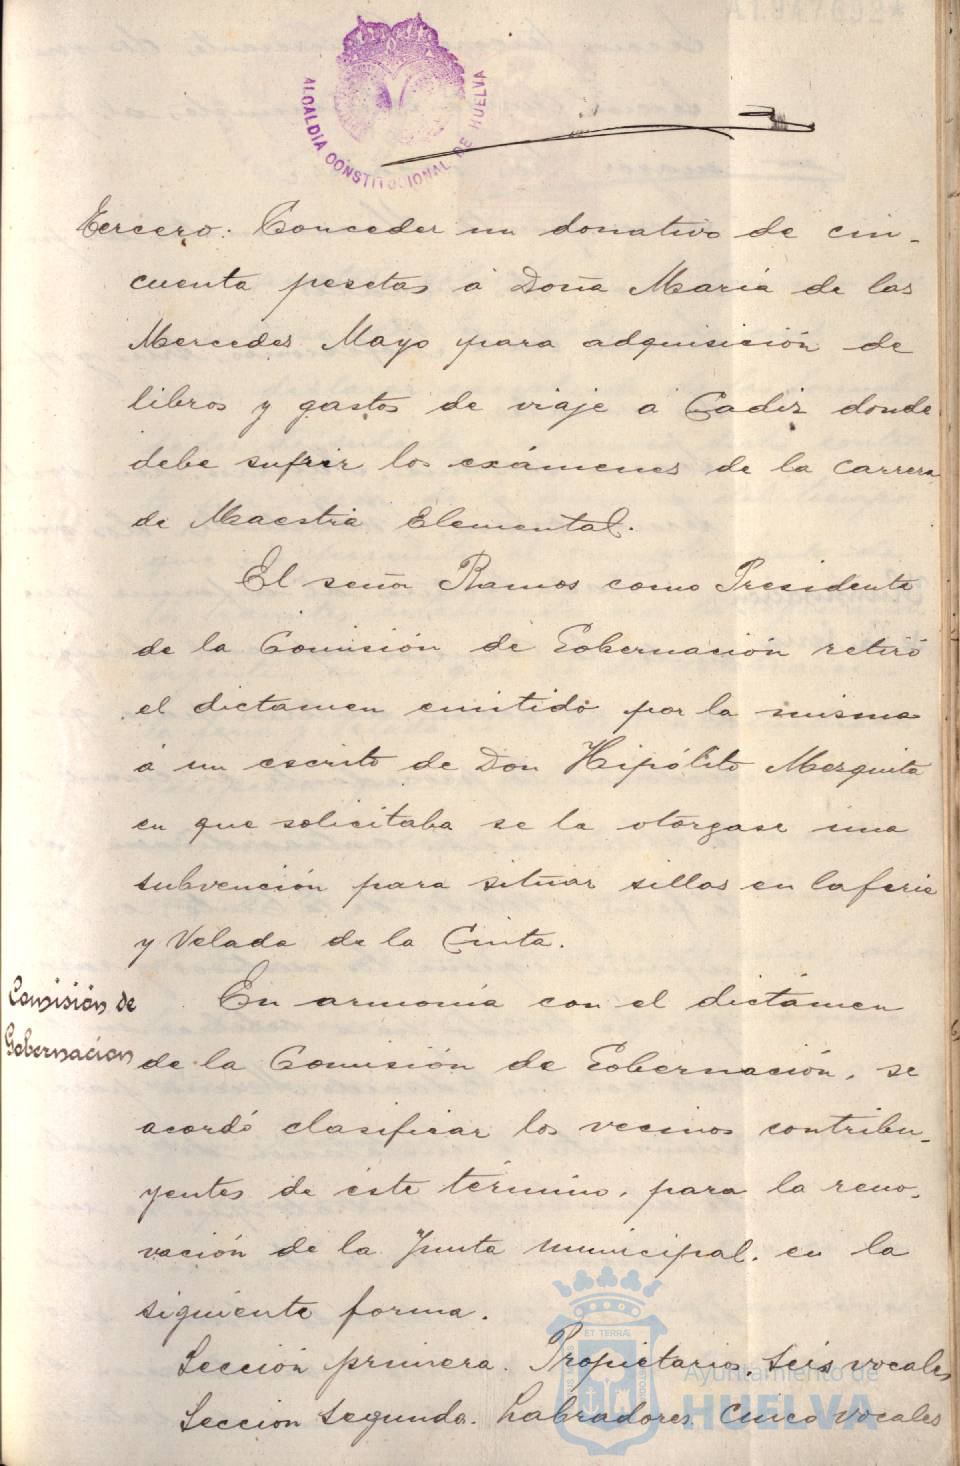 ALCALDIA CONSTITUCIONAL DE HUELVA
Tercero: Conceder un donativo de cin-
cuenta pesetas á Doña María de las
Mercedes Mayo para adquisición de
libros y gastos de viaje á Cadiz donde
debe sufrir los exámenes de la carrera
de Maestra Elemental.
El señor Ramos como Presidente
de la Comisión de Gobernación retiró
el dictamen emitido por la misma
á un escrito de Don Hipólito Mezquita
en que solicitaba se le otorgase una
subvención para situar sillas en la feria
y Velada de la Cinta.
Comisión de
Gobernación
En armonía con el dictámen
de la Comisión de Gobernación, se
acordó clasificar los vecinos contribu-
yentes de éste término, para la reno-
vación de la Junta municipal, en la
siguiente forma.
Sección primera. Propietarios. Seis vocales
Seccion Segunda. Labradores. Cinco vocales
Ayuntamiento de
HUELVA